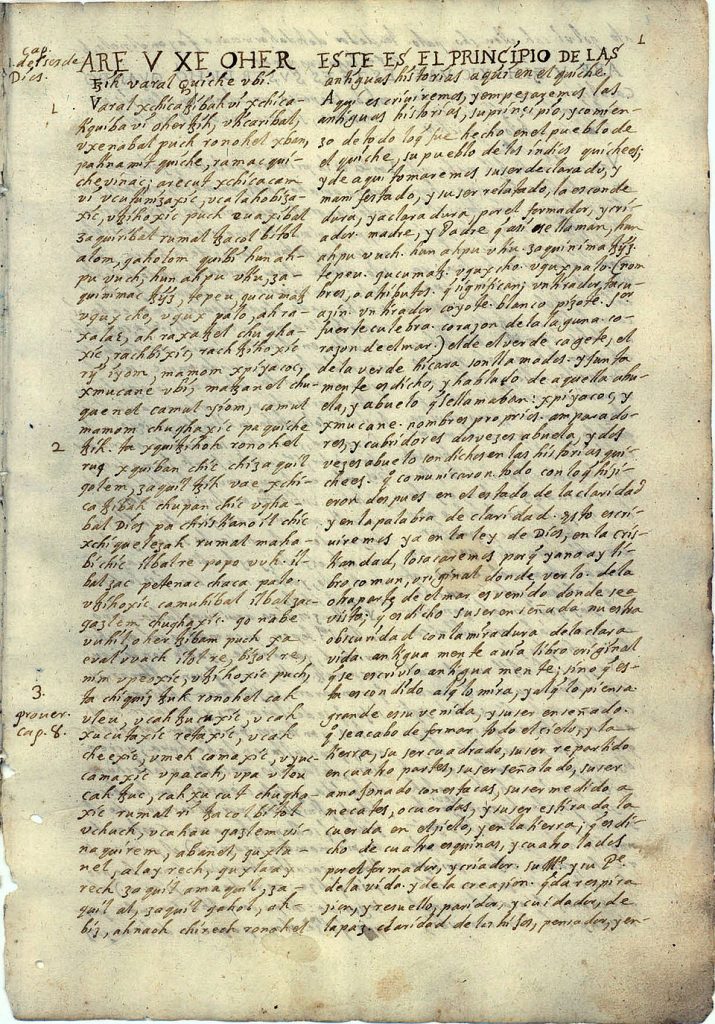 1
cap.
1. de fies de
Dios.
ARE V XE OHER
tzih varal quiche vbi.
1
Varal xchicatzibah vi xchica-
tiquiba vi oher tzih, vticaribal,
vxenabal puch ronohel xban,
pa tinamit quiche, ramac qui-
che vinac; arecut xchicacam
vi vcutunizaxic, vcalahobiza-
xic, vtzihoxic puch euaxibal
zaquiribal rumal tzacol bitol
alom, qaholom quibi hunah-
pu vuch, hunahpu vtiu, za-
quinimac tzyz, tepeu, qucumatz
vqux cho, vqux palo, ah ra-
xalac, ah raxatzel chugha-
xic, rachbixic, rachtzihoxic
rij iyom, mamom xpiyacoc,
xmucane vbi, matzanel chu-
quenel camul iyom, camul
mamom chughaxic pa quiche
2
tzih. ta xquitzihoh ronohel
ruq xquiban chic chi zaquil
golem, zaquil tzih vae xchi-
catzibah chupan chic vgha-
bal Dios pa christianoil chic
xchiquelezah rumal maha-
bi chic ilbal re popo vuh, il-
bal zac petenac chaca palo.
vtzihoxic camuhibal ilbal zac
gazlem chughaxic. go nabe
vuhil, oher tzibam puch xa
eval vvach ilol re, bizol re,
nim vpeoxic, vtzihoxic puch,
3.
prouer.
cap. 8.
ta chiquis tzuk ronohel cah
vleu, vcah tzucuxic, vcah
xucutaxic retaxic, vcah
cheexic, vmeh camaxic, vyuc
camaxic vpa cah, vpa vleu
cah tzuc, cah xucut chugha-
xic rumal ri tzacol bitol
vchuch, vcahau gazlem vi-
naquirem, abanel, quxla-
nel, alay rech, quxlaay
rech zaquil amaquil, za-
quil al, zaquil qahol, ah-
biz, ahnaoh chirech ronohel
ESTE ES EL PRINCIPIO DE LAS
antiguas historias aqui en el quiche.
Aqui escriuiremos, y empezaremos las
antiguas historias, su principio, y comien-
zo de todo loq̃ fue hecho en el pueblo de
el quiche, su pueblo de los indios quichees;
y de aqui tomaremos su ser declarado, y
manifestado, y su ser relatado, la esconde
dura, y aclaradura, por el formador, y cri-
ador. madre, y Padre q̃ asi se llaman, hun
ahpu vuch. hun ahpu vtiu. zaquinima tzyz
tepeu. qucumatz. vqux cho. vqux palo. (nom
bres, o atributos. q̃ significan; vn tirador tacu-
azin. vn tirador coyote. blanco pizote. for
fuerte culebra. corazon de la laguna. co-
razon de el mar.) el de el verde cagete, el
de la verde hicara son llamados. y junta
mente es dicho, y hablado de aquella abu-
ela, y abuelo q̃ se llamaban: xpiyacoc, y
xmucane. nombres proprios. amparado-
res, y cubridores dos vezes abuela, y dos
vezes abuelo son dichos en las historias qui-
chees. q̃ comunicaron. todo con loq̃ hizi-
eron despues en el estado de la claridad
y en la palabra de claridad. Esto escri-
uiremos ya en la ley de Dios, en la cris-
tiandad, lo sacaremos porq̃ ya no ay li-
bro comun, original donde verlo. de la
otra parte de el mar es venido donde se a
visto; y es dicho su ser enseñada nuestra
obscuridad con la miradura de la clara
vida. antigua mente auia libro original
q̃ se escriuio antigua mente; sino q̃ es-
ta escondido al q̃ lo mira, y al q̃ lo piensa
grande es su venida, y su ser enseñado.
q̃ se acabo de formar todo el cielo, y la
tierra, su ser cuadrado, su ser repartido
en cuatro partes, su ser señalado, su ser
amojonado con estacas, su ser medido a
mecates, o cuerdas, y su ser estirada la
cuerda en el zielo, y en la tierra; q̃ es di-
cho de cuatro esquinas, y cuatro lados
por el formador, y criador. su Mᵉ. y su Pᵉ
de la vida. y de la creazion. q̃ da respira-
zion, y resuello, paridor, y cuidador, de
la paz. claridad de los hijos, pensador, y en-